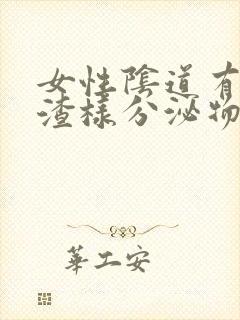 女性陰道有
渣樣分泌物
華工安